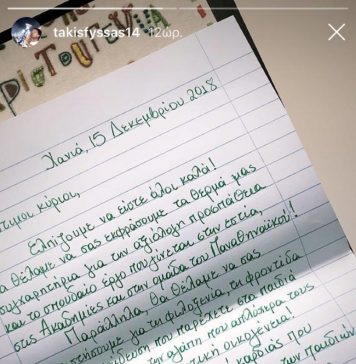 takisfyssas14 12ωρ.
Χανιά, 15 Δεκεμβρίου 2018
κύριοι,
Ελπίζουμε να είστε όλοι καλά!
θέλαμε να σας εκφράσουμε τα θερμά μας
συγχαρητήρια για την αξιόλογη προσπάθεια
και το σπουδαίο έργο που γίνεται στην εστία,
στις Ακαδημίες και στην ομάδα του Παναθηναϊκού!
Παράλληλα, θα θέλαμε να σας
για τη φιλοξενία, τη φροντίδα
που παρείχατε στα παιδιά
την αγάπη που απλόχερα τους
οικογένεια!
που
των παιδιών